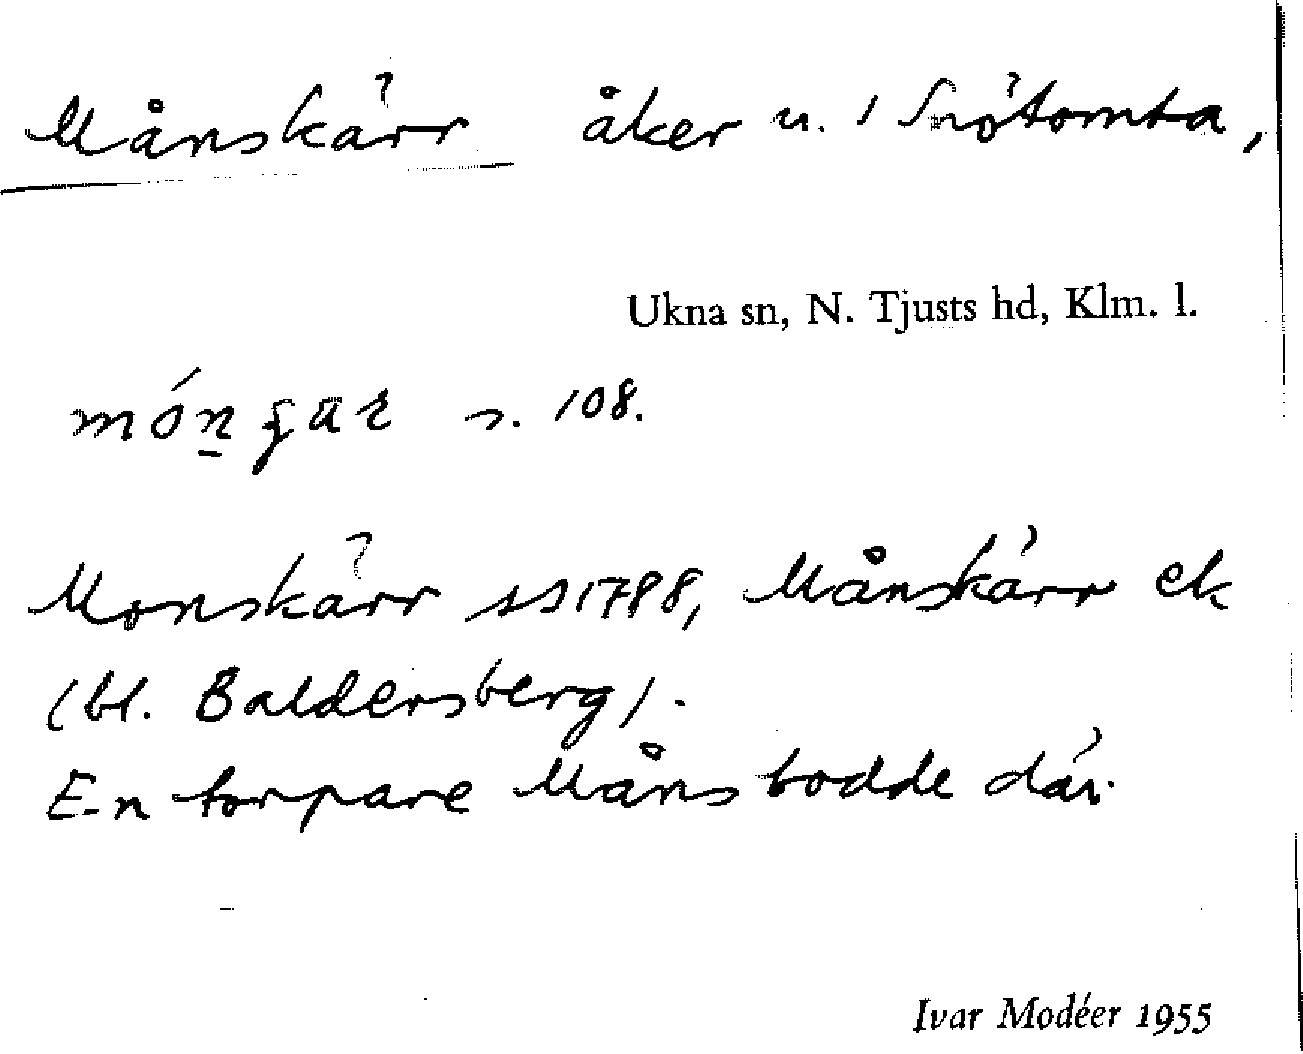 Månskärr åker u. 1 Snötomta,
Ukna sn, N. Tjusts hd, Klm. l.
s. 108.
Monskärr 1788, Månskärr ek
(bl. Baldersberg).
En torpare Måns bodde där.
Ivar Modéer 1955